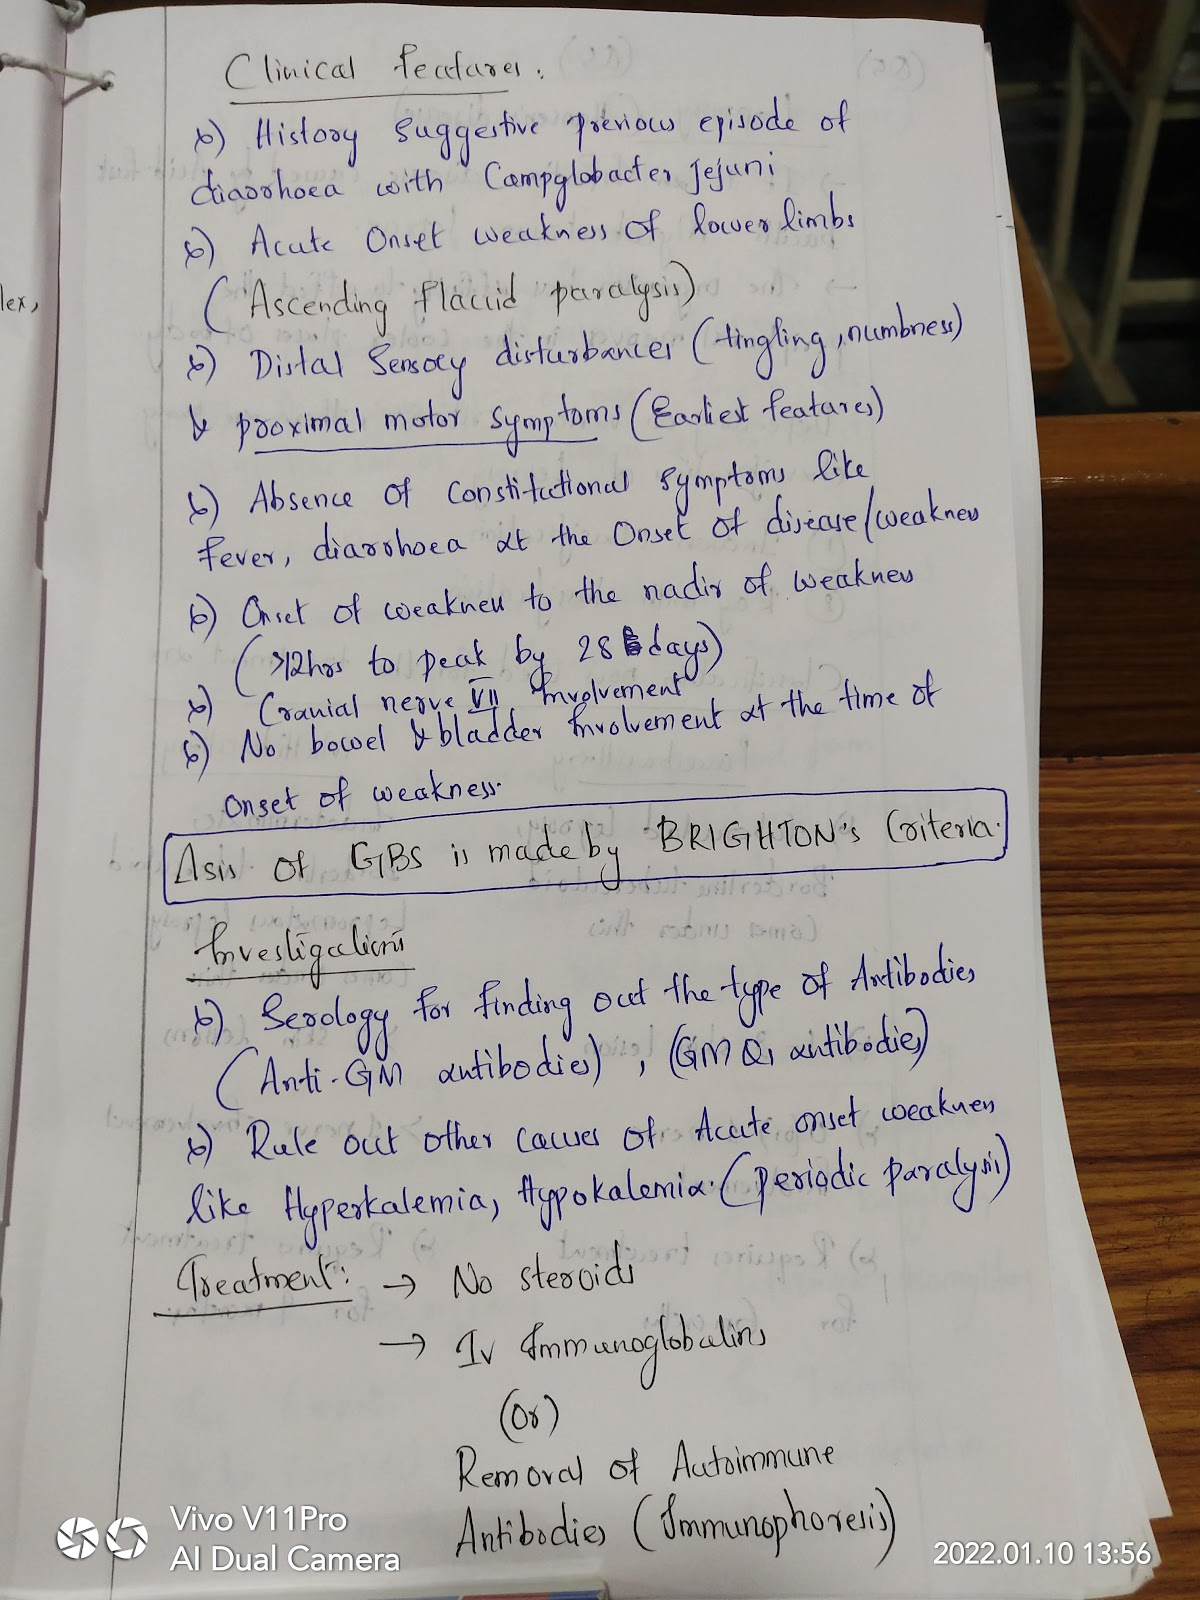 Clinical features:
b) History suggestive previous episode of
diaorhoea with Campglobacter Jejuni
b) Acute Onset weakness of lower limbs
(Ascending flaccid paralysis)
b) Distal Sensory disturbances (tingling, numbness)
& proximal motor symptoms (Earliest features)
b) Absence of Constitutional symptoms like
fever, diarrhoea at the Onset of disease/weakness
b) Onset of weakness to the nadir of weakness
(>12hrs to peak by 28 days)
b) Cranial nerve VII Involvement
b) No bowel & bladder Involvement at the time of
onset of weakness.
Δsis of GBS is made by BRIGHTON's Criteria.
Investigations
b) Serology for finding out the type of Antibodies
(Anti-GM antibodies), (GM Q1 antibodies)
b) Rule out other causes of Acute onset weakness
like Hyperkalemia, Hypokalemia. (periodic paralysis)
Treatment: → No steroids
→ Iv Immunoglobulins
(Or)
Removal of Autoimmune
Antibodies (Immunophoresis)
lex,
Vivo V11Pro
AI Dual Camera
2022.01.10 13:56